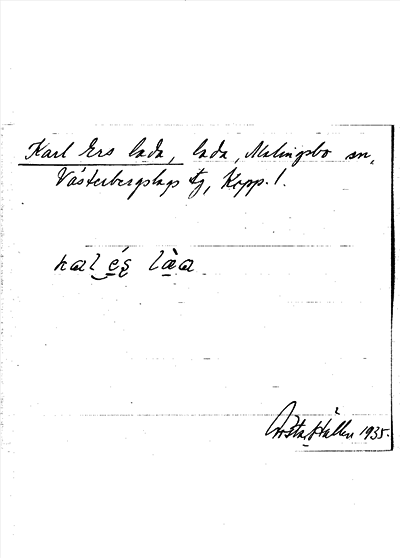 Karl Ers lada, lada, Malingsbo sn,
Västerbergslags tg, Kopp. l.
kal és làa
Gösta Hallén 1935.